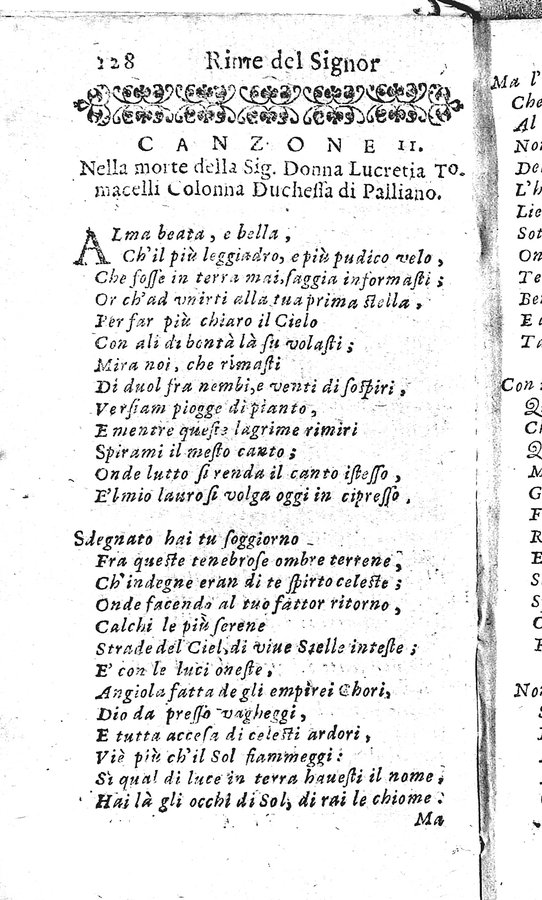 128 Rime del Signor
CANZONE II.
Nella morte della Sig. Donna Lucretia To-
macelli Colonna Duchessa di Palliano.
ALma beata, e bella,
Ch'il più leggiadro, e più pudico velo,
Che fosse in terra mai, saggia informasti;
Or ch'ad vnirti alla tua prima stella,
Per far più chiaro il Cielo
Con ali di bontà là su volasti;
Mira noi, che rimasti
Di duol fra nembi, e venti di sospiri,
Versiam piogge di pianto,
E mentre queste lagrime rimiri
Spirami il mesto canto;
Onde lutto si renda il canto istesso,
E'l mio lauro si volga oggi in cipresso.
Sdegnato hai tu soggiorno
Fra queste tenebrose ombre terrene,
Ch'indegne eran di te spirto celeste;
Onde facendo al tuo fattor ritorno,
Calchi le più serene
Strade del Ciel, di viue Stelle inteste;
E' con le luci oneste,
Angiola fatta de gli empirei Chori,
Dio da presso vagheggi,
E tutta accesa di celesti ardori,
Viè più ch'il Sol fiammeggi:
Si qual di luce in terra hauesti il nome,
Hai là gli occhi di Sol, di rai le chiome.
Ma
Ma l'
Che
Al
L'h
Lie
Sot
On
Te
Con